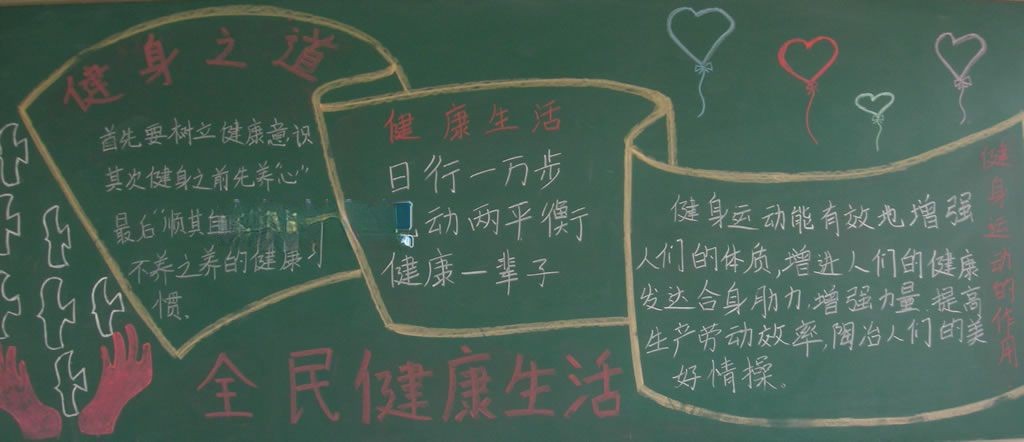 健身之道
首先要树立健康意识
其次健身之前先养“心”
最后“顺其自
不养之养的健康习
惯。
健康生活
日行一万步
动两平衡
健康一辈子
健身运动的作用
健身运动能有效地增强
人们的体质,增进人们的健康
发达合身肋力,增强力量,提高
生产劳动效率,陶冶人们的美
好情操。
全民健康生活